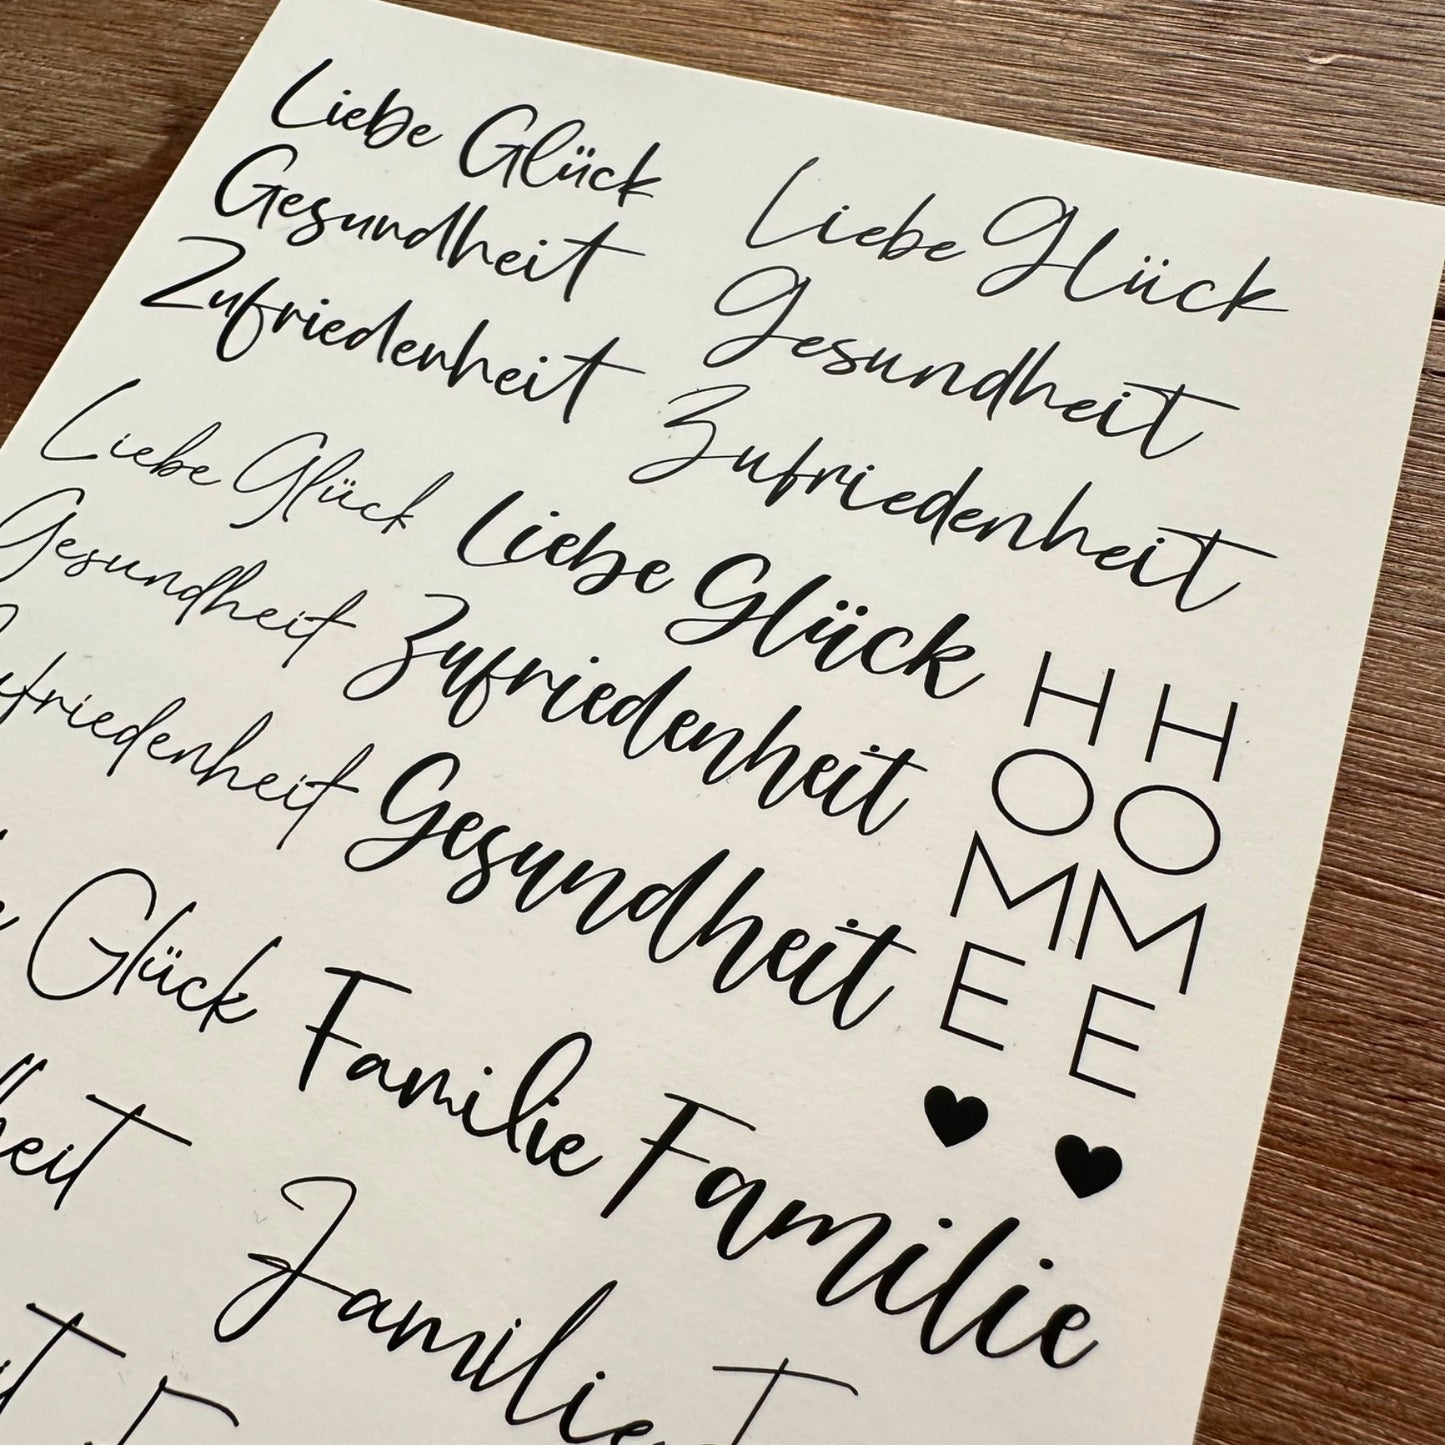 Liebe Glück
Gesundheit
Zufriedenheit
Liebe Glück
Gesundheit
Zufriedenheit
Liebe Glück
Gesundheit
Liebe Glück
Zufriedenheit
Gesundheit
HOME
HOME
Glück
Familie
Familie
Familie